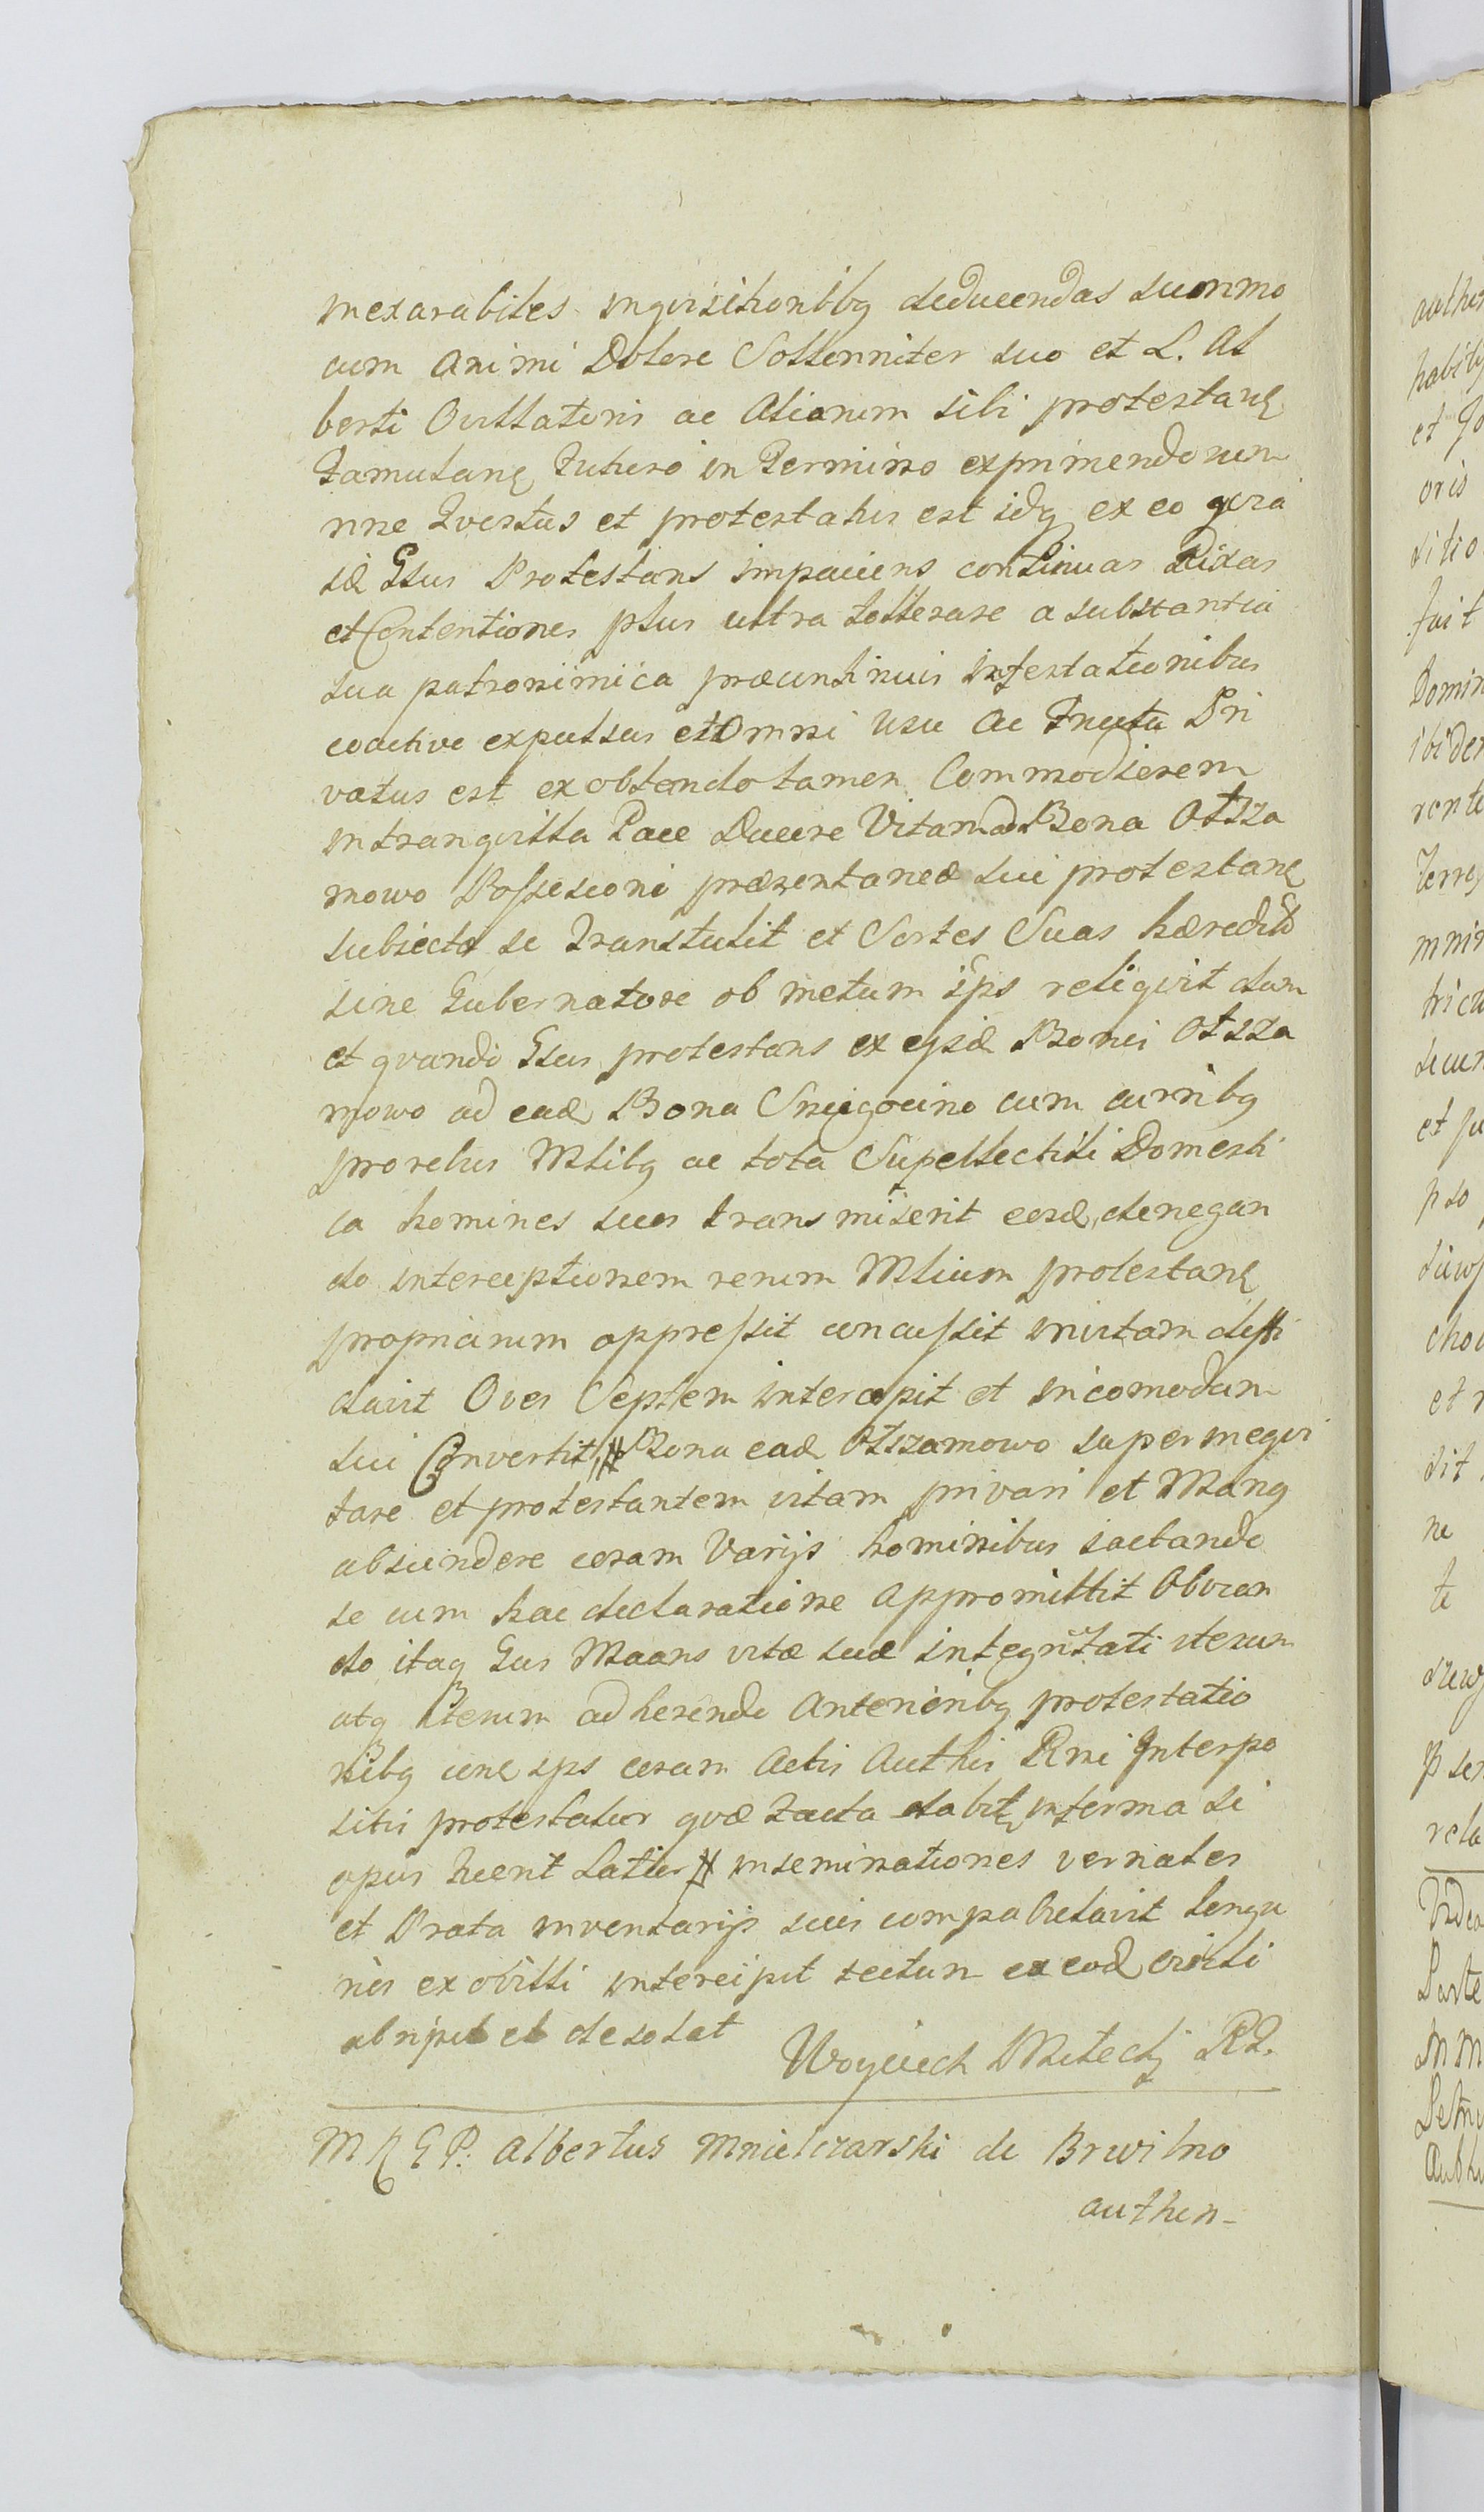 inexarabiles inqvisitionibq deducendas summo
cum animi Dolore Sollenniter suo et L. Al
berti Ovillatoris ac Aliorum sibi protestanę
Famulanę Futuro in Termino exprimendorum
nne Qvestus et protestatus est idq ex eo qvia
Gsus Protestans impaciens continuas Rixas
et Contentiones plus ultra tollerare a substantia
sua patronimica præcontinuis infestationibus
coactive expulsus et Omni usu ac Fructu Pri
vatus est ex obtendo tamen Commodiorem
in tranqvilla Pace Ducere Vitam ad Bona Olsza
mowo Possesioni præsentaneæ sui protestanę
subiecta se Transtulit et Sortes Suas hæredit
sine Gubernatore ob metum ips reliqvit dum
et qvando Gsus protestans ex ijsd Bonis Olsza
mowo ad ead Bona Sniegocino cum curribq
pro rebus Mlibq ac tota Supellectili Domesti
ca homines suos transmiserit eosd, denegan
do interceptionem rerum Mlium protestanę
propriarum oppressit concussit invitam diffi
davit Oves Septem intercepit et in comodum
sui Convertit # Bona ead Olszamowo super ineqvi
tare et protestantem vitam privari et Manq
abscindere coram Varijs hominibus iactando
se cum hac declaratione appromittit Obvian
do itaq Gsus Maans vitæ suæ integritati iterum
atq iterum adherendo Anterioribq protestatio
nibq conę ips coram Actis Authis Rni Interpo
sitis protestatur qvæ facta dabitę in forma si
opus fuerit Latior # inseminationes vernales
et Prata inventarijs suis compabulavit longu
rios ex ovilli intercipit tectum ex eod ovili
abripit et desolat
Woyciech Miteckj RP.
M R G P. Albertus Mnielczarski de Brwilno
authen-